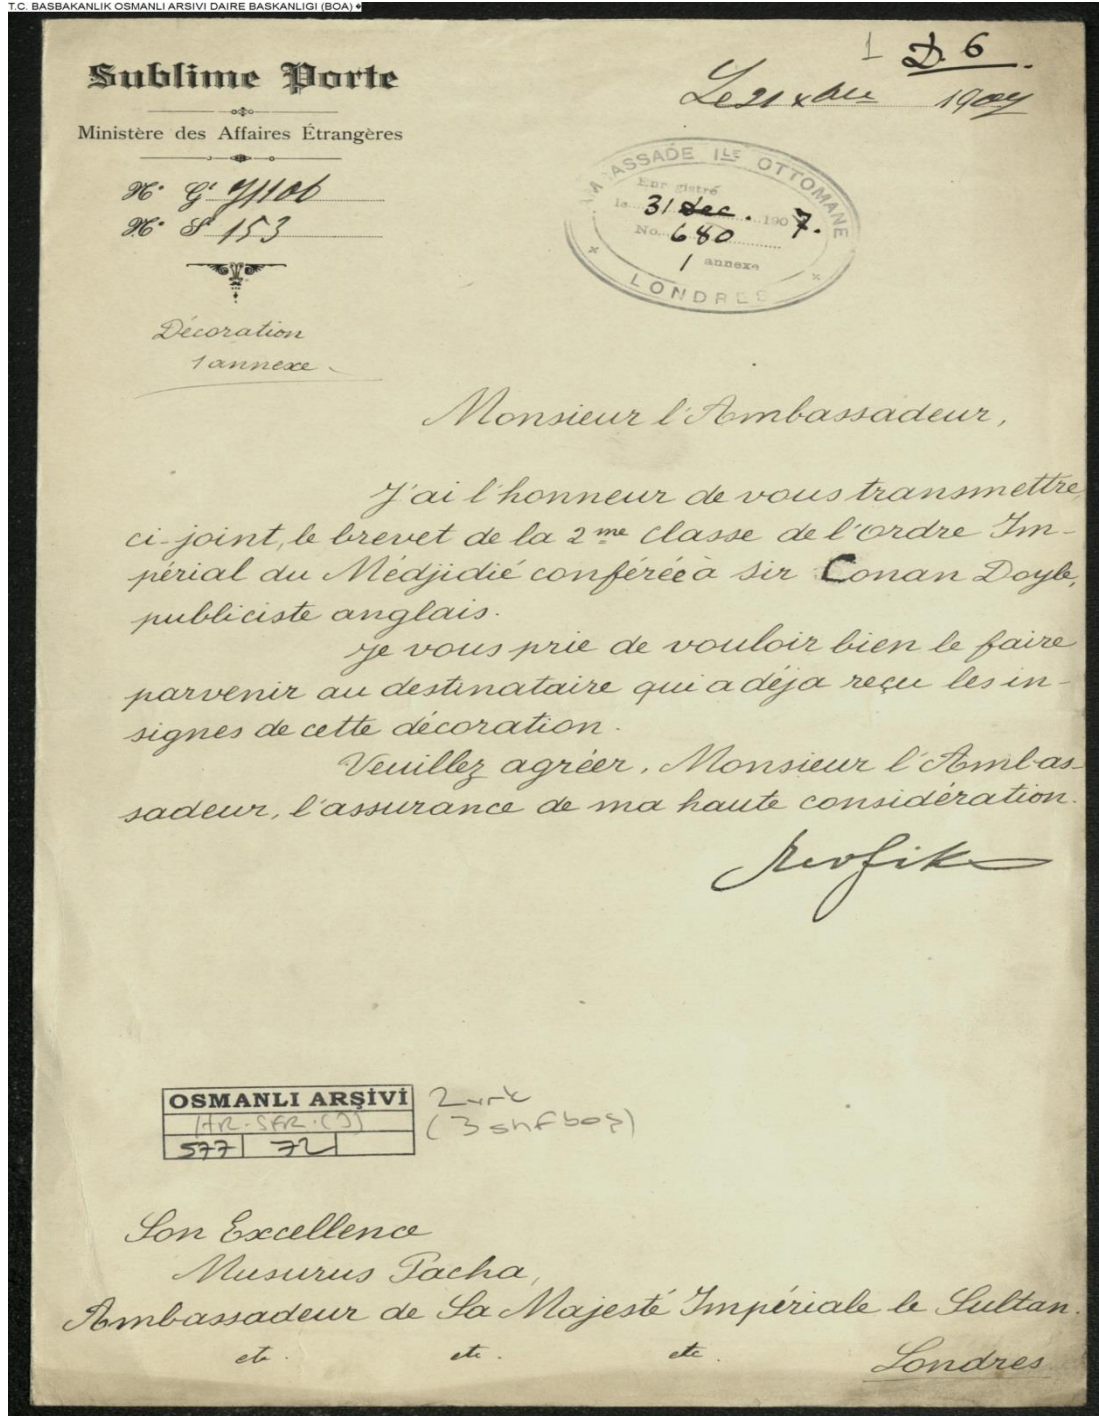 T.C. BASBAKANLIK OSMANLI ARSIVI DAIRE BASKANLIGI (BOA)
1 D. 6
Sublime Porte
Le 21 xbre 1907
Ministère des Affaires Étrangères
No. Gl 71106
No. Sl 153
AMBASSADE ILE OTTOMANE
Enregistré
le 31 dec. 1907.
No. 680
1 annexe
LONDRES
Décoration
1 annexe
Monsieur l'Ambassadeur,
J'ai l'honneur de vous transmettre,
ci-joint, le brevet de la 2me classe de l'Ordre Im-
périal du Médjidié conférée à Sir Conan Doyle,
publiciste anglais.
Je vous prie de vouloir bien le faire
parvenir au destinataire qui a déja reçu les in-
signes de cette décoration.
Veuillez agréer, Monsieur l'Ambas-
sadeur, l'assurance de ma haute considération.
Tevfik
OSMANLI ARŞİVİ
HR. SFR. (3)
577 72
2 vrk
(3 shf boş)
Son Excellence
Musurus Pacha,
Ambassadeur de Sa Majesté Impériale le Sultan.
etc. etc. etc.
Londres